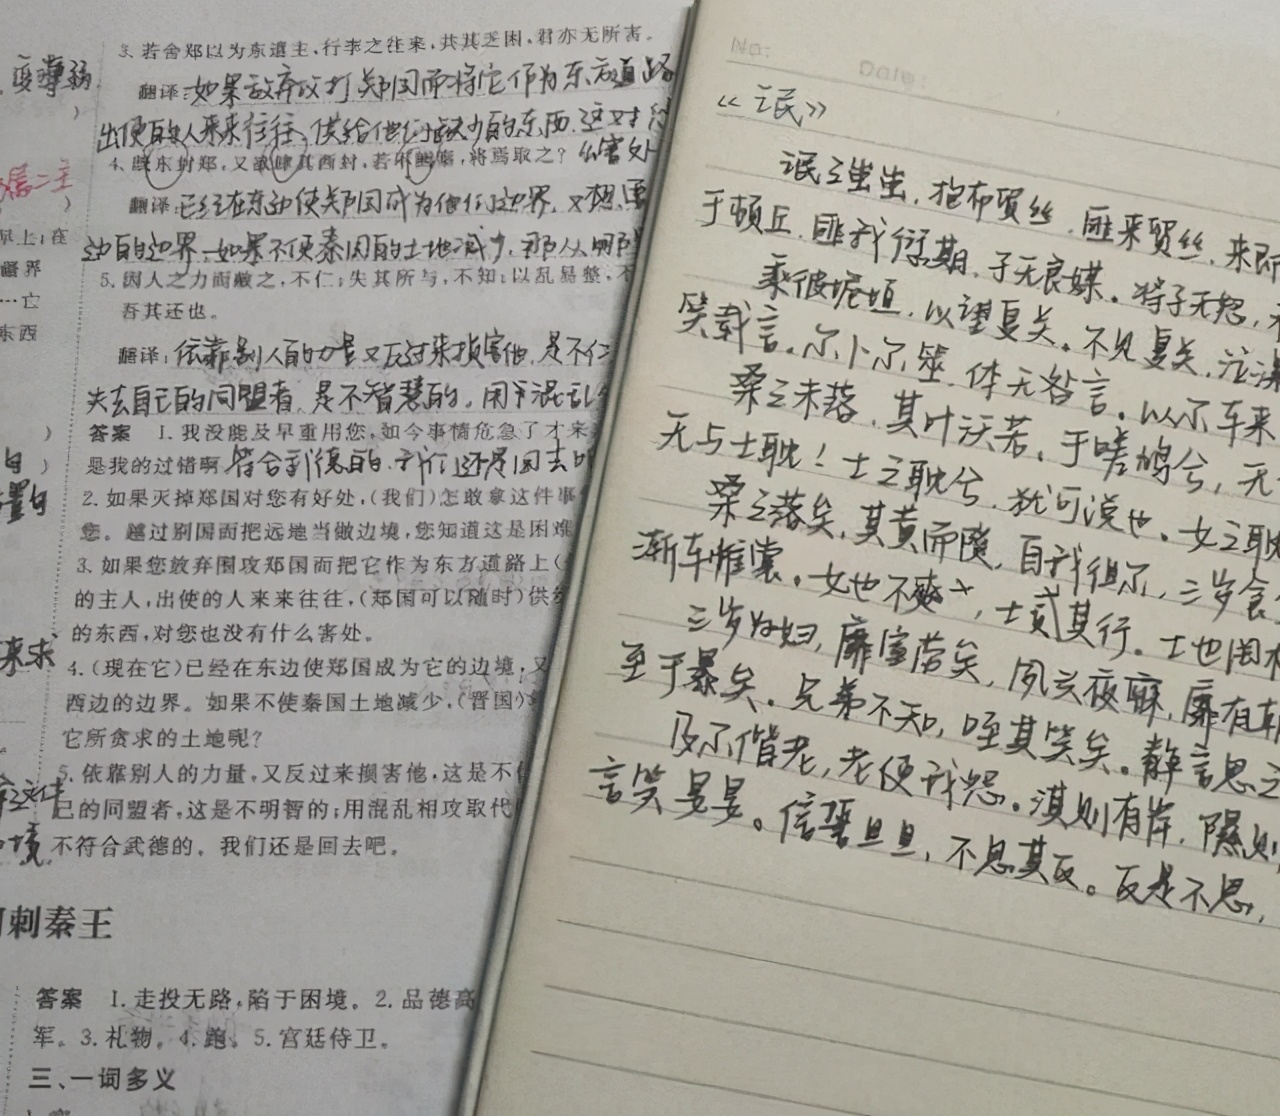 变薄弱
3. 若舍郑以为东道主,行李之往来,共其乏困,君亦无所害。
翻译:如果放弃攻打郑国而将它作为东方道路
出使的人来来往往,供给他们缺少的东西.这对您
4. 既东封郑,又欲肆其西封,若不阙秦,将焉取之?
翻译:已经在东边使郑国成为他们边界,又想
边的边界.如果不使秦国的土地减少,那从哪
5. 因人之力而敝之,不仁;失其所与,不知;以乱易整,不
吾其还也。
翻译:依靠别人的力量又反过来损害他,是不仁
失去自己的同盟者,是不智慧的,用混乱
答案 1. 我没能及早重用您,如今事情危急了才来
是我的过错啊 符合武德的.我们还是回去吧
2. 如果灭掉郑国对您有好处,(我们)怎敢拿这件事
您。越过别国而把远地当做边境,您知道这是困难
3. 如果您放弃围攻郑国而把它作为东方道路上(
的主人,出使的人来来往往,(郑国可以随时)供
的东西,对您也没有什么害处。
4. (现在它)已经在东边使郑国成为它的边境,又
西边的边界。如果不使秦国土地减少,(晋国)
它所贪求的土地呢?
5. 依靠别人的力量,又反过来损害他,这是不
己的同盟者,这是不明智的;用混乱相攻取代
不符合武德的。我们还是回去吧。
刺秦王
答案 1. 走投无路,陷于困境。2. 品德高
军。3. 礼物。4. 跑。5. 宫廷侍卫。
三、一词多义
早上;在
疆界
…亡
东西
来求
境
No:
Date:
《氓》
氓之蚩蚩,抱布贸丝.匪来贸丝,来即
于顿丘.匪我愆期,子无良媒。将子无怒,
乘彼垝垣,以望复关。不见复关,泣涕
笑载言。尔卜尔筮,体无咎言。以尔车来
桑之未落,其叶沃若。于嗟鸠兮,无
无与士耽!士之耽兮,犹可说也。女之耽
桑之落矣,其黄而陨,自我徂尔,三岁食
渐车帷裳。女也不爽,士贰其行。士也罔
三岁为妇,靡室劳矣,夙兴夜寐,靡有朝
至于暴矣。兄弟不知,咥其笑矣。静言思之
及尔偕老,老使我怨。淇则有岸,隰则
言笑晏晏。信誓旦旦,不思其反。反是不思,